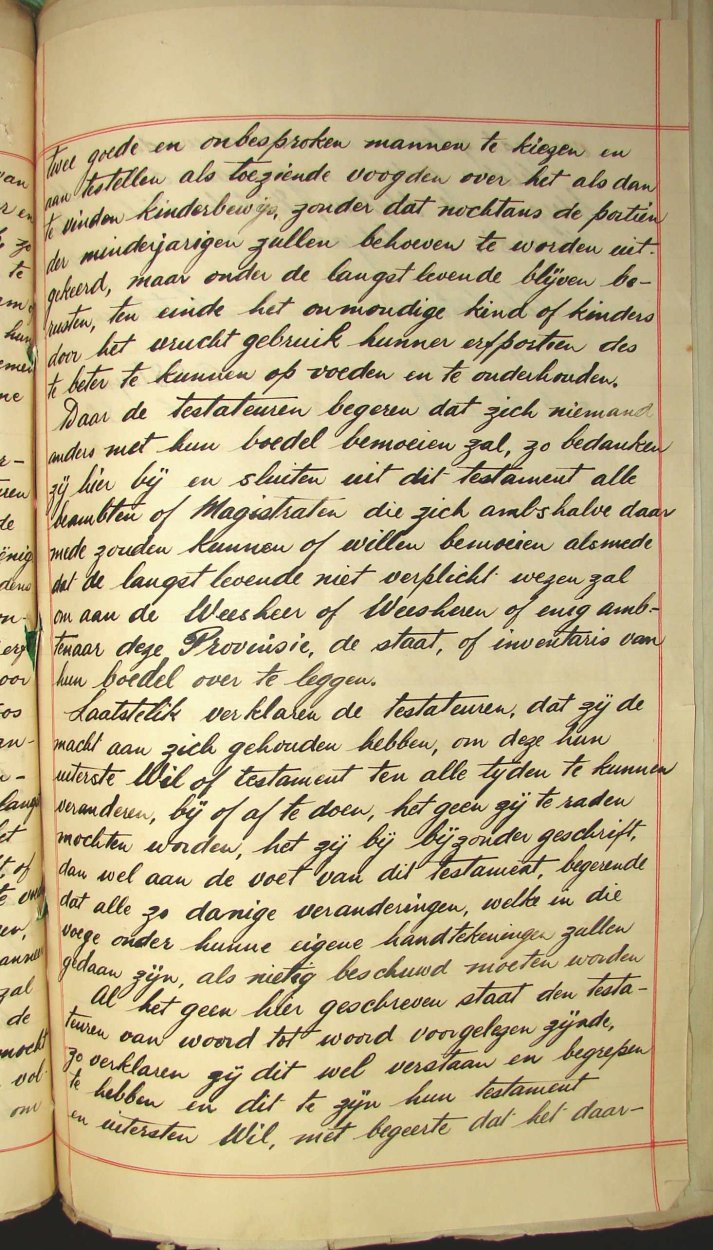 twee goede en onbesproken mannen te kiezen en
aan testellen als toeziende voogden over het als dan
te vinden kinderbewijs, zonder dat nochtans de portien
der minderjarigen zullen behoeven te worden uit-
gekeerd, maar onder de langst levende blijven be-
rusten, ten einde het onmondige kind of kinders
door het vrucht gebruik hunner erfportien des
te beter te kunnen op voeden en te onderhouden.
Daar de testateuren begeren dat zich niemand
anders met hun boedel bemoeien zal, zo bedanken
zij hier bij en sluiten uit dit testament alle
beambten of Magistraten die zich ambshalve daar
mede zouden kunnen of willen bemoeien alsmede
dat de langst levende niet verplicht wezen zal
om aan de Weesheer of Weesheren of enig amb-
tenaar deze Provinsie, de staat, of inventaris van
hun boedel over te leggen.
Laatstelik verklaren de testateuren, dat zij de
macht aan zich gehouden hebben, om deze hun
uiterste Wil of testament ten alle tyden te kunnen
veranderen, bij of af te doen, het geen zij te raden
mochten worden, het zij bij bijzonder geschrift,
dan wel aan de voet van dit testament, begerende
dat alle zo danige veranderingen, welke in die
voege onder hunne eigene handtekeningen zullen
gedaan zijn, als nietig beschuwd moeten worden
Al het geen hier geschreven staat den testa-
teuren van woord tot woord voorgelezen zijnde,
zo verklaren zij dit wel verstaan en begrepen
te hebben en dit te zijn hun testament
en uitersten Wil, met begeerte dat het daar-